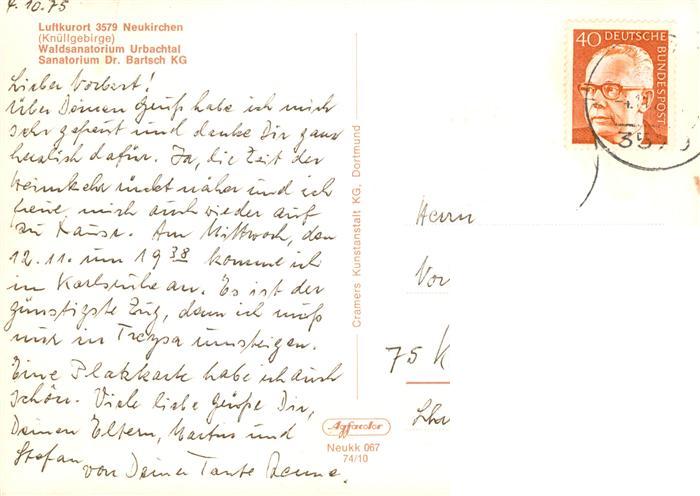 4.10.75
Luftkurort 3579 Neukirchen
(Knüllgebirge)
Waldsanatorium Urbachtal
Sanatorium Dr. Bartsch KG
Lieber Norbert!
Über Deinen Gruß habe ich mich
sehr gefreut und danke Dir ganz
herzlich dafür. Ja, die Zeit der
Heimkehr rückt näher und ich
freue mich auch wieder auf
zu Hause. Am Mittwoch, den
12.11. um 19 38 komme ich
in Karlsruhe an. Es ist der
günstigste Zug, denn ich muß
nur in Treysa umsteigen.
Eine Platzkarte habe ich auch
schon. Viele liebe Grüße Dir,
Deinen Eltern, und
Stefan
von Deiner Tante
Cramers Kunstanstalt KG, Dortmund
Agfacolor
Neukk 067
74/10
40 DEUTSCHE BUNDESPOST
Herrn
75 K